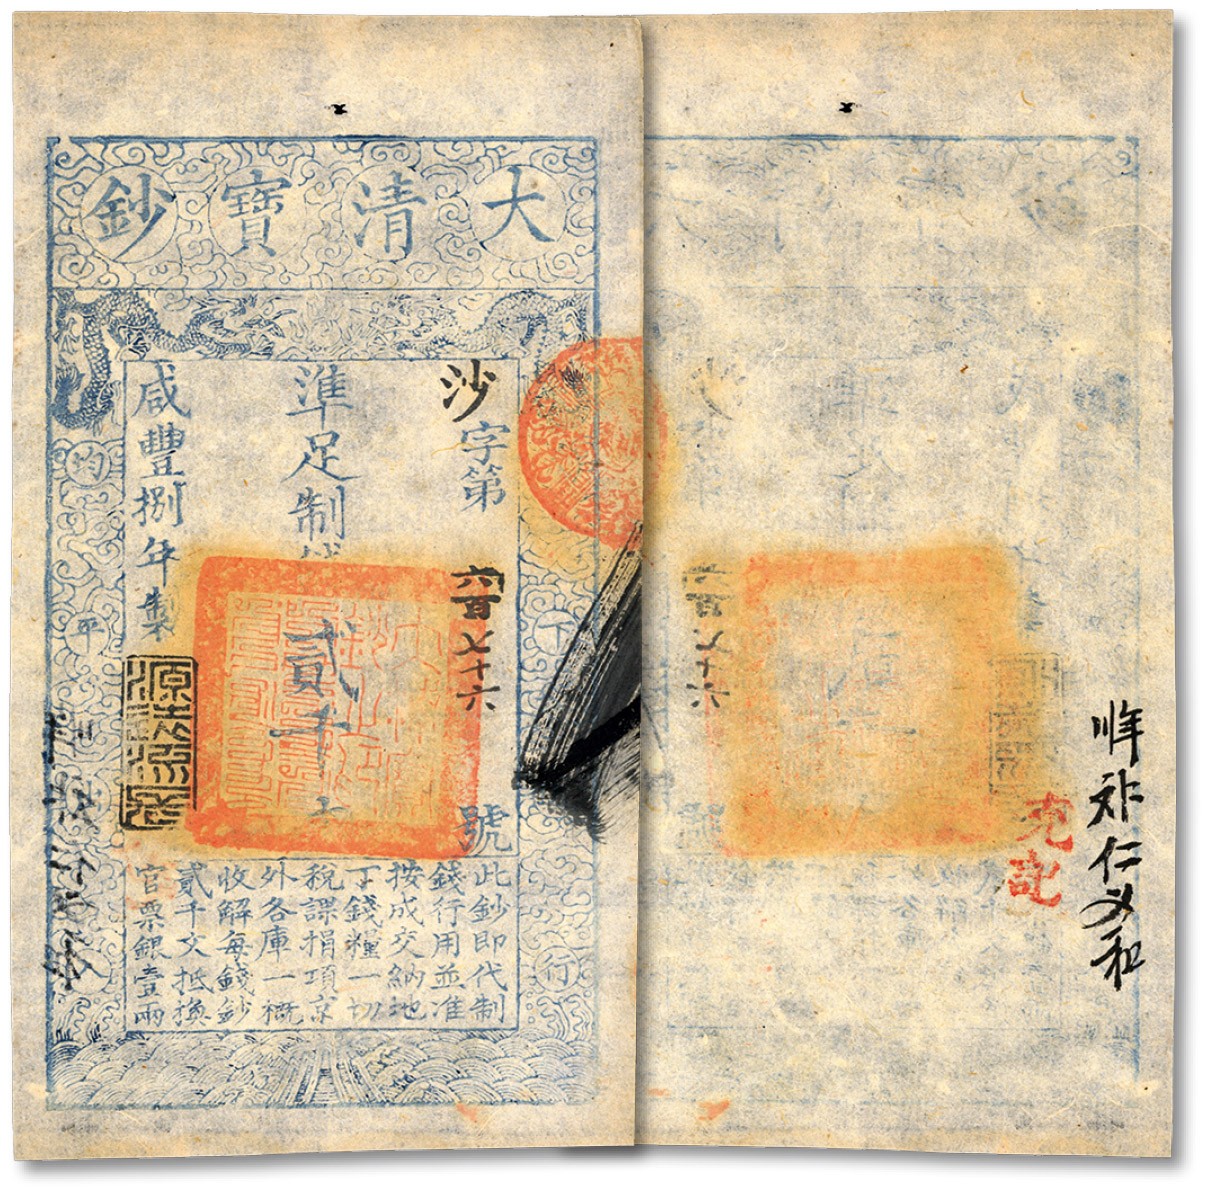 大清寶鈔
沙字第六百七十六號
準足制錢貳千文
咸豐捌年製
下
行
均
平
此鈔即代制
錢行用並准
按成交納地
丁錢糧一切
稅課捐項京
外各庫一概
收解每錢鈔
貳千文抵換
官票銀壹兩
仁义和